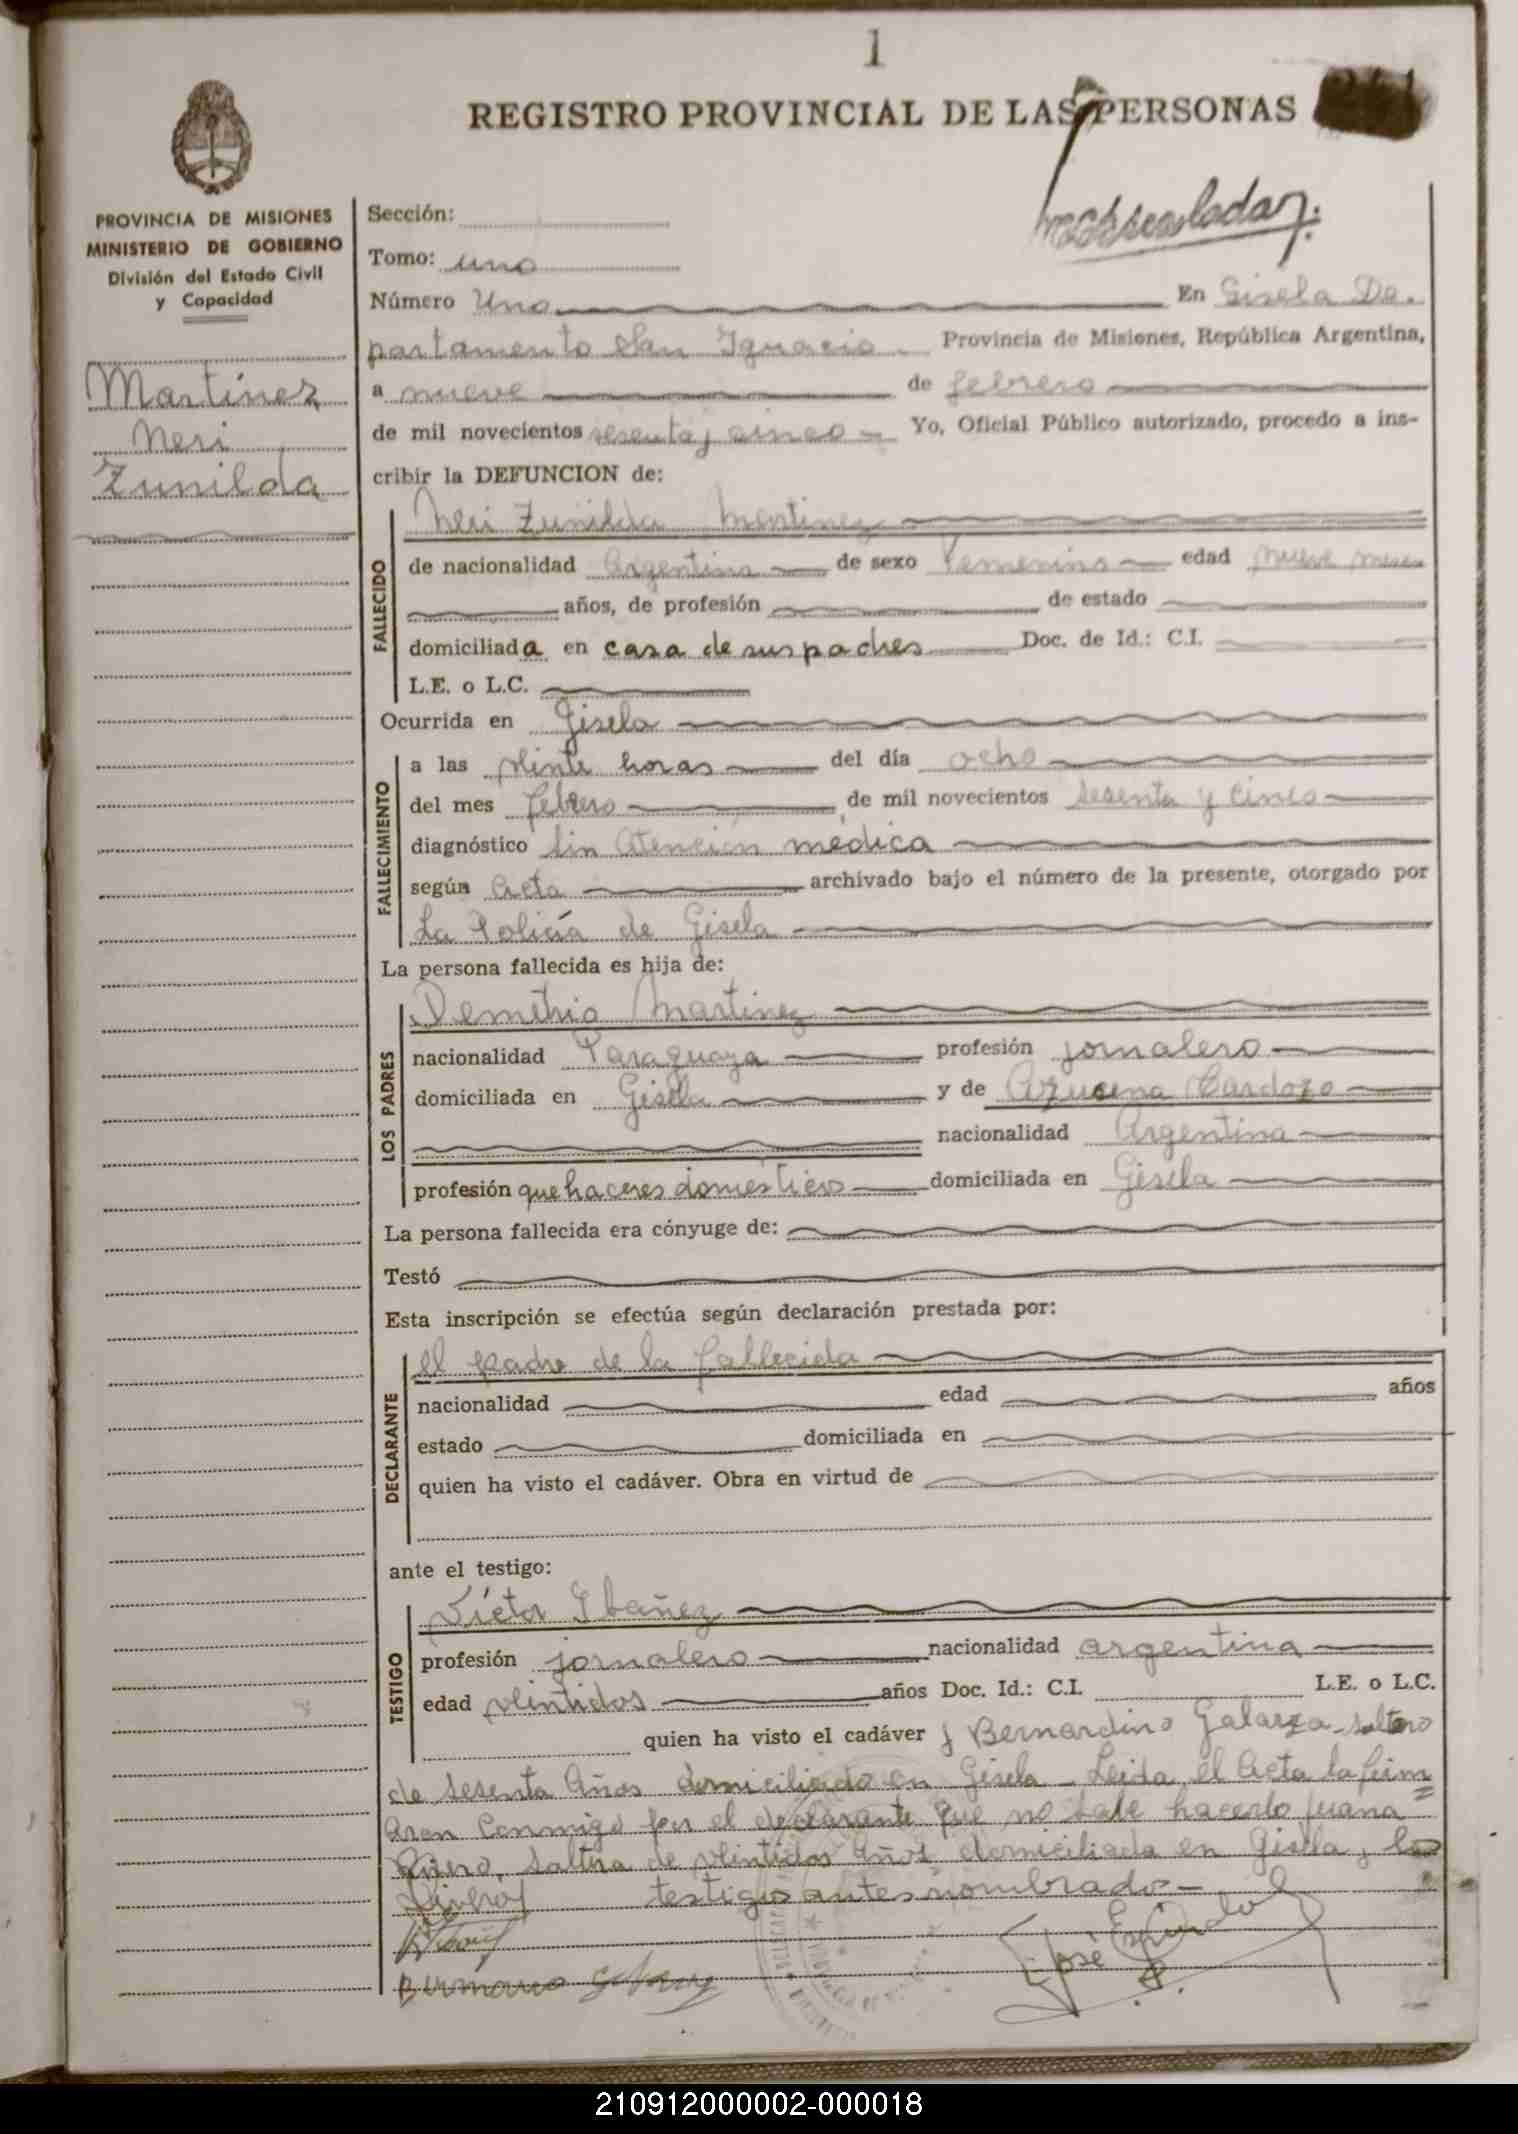 1
REGISTRO PROVINCIAL DE LAS PERSONAS
PROVINCIA DE MISIONES
MINISTERIO DE GOBIERNO
División del Estado Civil
y Capacidad
Martínez
Neri
Zunilda
Sección:
Tomo: uno
Número Uno En Gisela De-
partamento San Ignacio Provincia de Misiones, República Argentina,
a nueve de febrero
de mil novecientos sesenta y cinco Yo, Oficial Público autorizado, procedo a ins-
cribir la DEFUNCION de:
Neri Zunilda Martinez
FALLECIDO
de nacionalidad Argentina de sexo Femenino edad nueve meses
años, de profesión de estado
domiciliada en casa de sus padres Doc. de Id.: C.I.
L.E. o L.C.
Ocurrida en Gisela
FALLECIMIENTO
a las veinte horas del día ocho
del mes febrero de mil novecientos sesenta y cinco
diagnóstico Sin Atención médica
según Acta archivado bajo el número de la presente, otorgado por
La Policía de Gisela
La persona fallecida es hija de:
LOS PADRES
Demetrio Martinez
nacionalidad Paraguaya profesión jornalero
domiciliada en Gisela y de Azucena Cardozo
nacionalidad Argentina
profesión quehaceres domésticos domiciliada en Gisela
La persona fallecida era cónyuge de:
Testó
Esta inscripción se efectúa según declaración prestada por:
DECLARANTE
el padre de la fallecida
nacionalidad edad años
estado domiciliada en
quien ha visto el cadáver. Obra en virtud de
ante el testigo:
TESTIGO
Víctor Ibañez
profesión jornalero nacionalidad argentina
edad veintidos años Doc. Id.: C.I. L.E. o L.C.
quien ha visto el cadáver y Bernardino Galarza soltero
de sesenta Años domiciliado en Gisela Leida el Acta la firm=
aron Conmigo por el declarante que no sabe hacerlo Juana
soltera de veintidos años domiciliada en Gisela y los
testigos antes nombrado
José Espindola
210912000002-000018